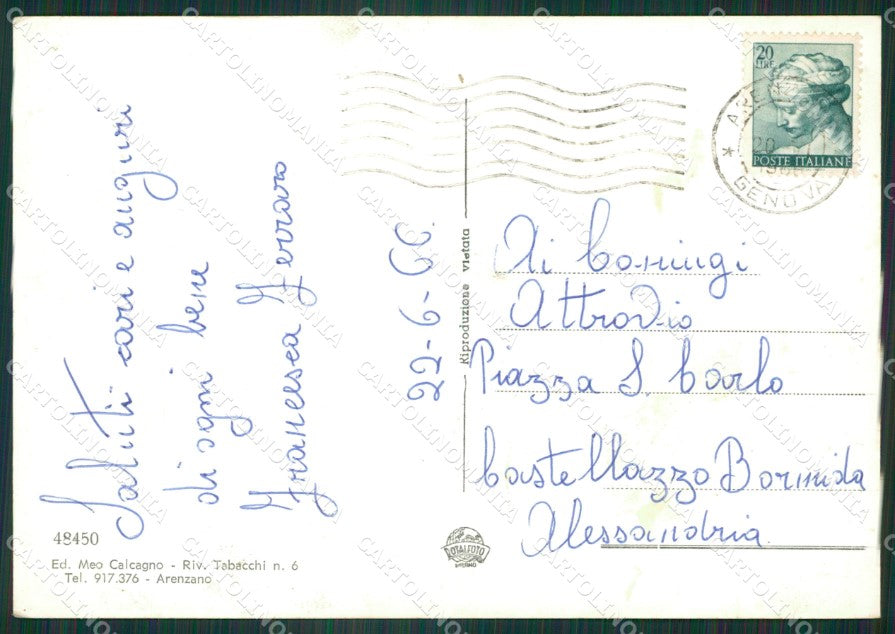 Saluti cari e auguri
di ogni bene
Francesca Ferraro
22-6-66.
Riproduzione vietata
20
LIRE
POSTE ITALIANE
GENOVA
Ai Coniugi
Attrovio
Piazza S. Carlo
Castellazzo Bormida
Alessandria
48450
Ed. Meo Calcagno - Riv. Tabacchi n. 6
Tel. 917.376 - Arenzano
CARTOLINOMANIA